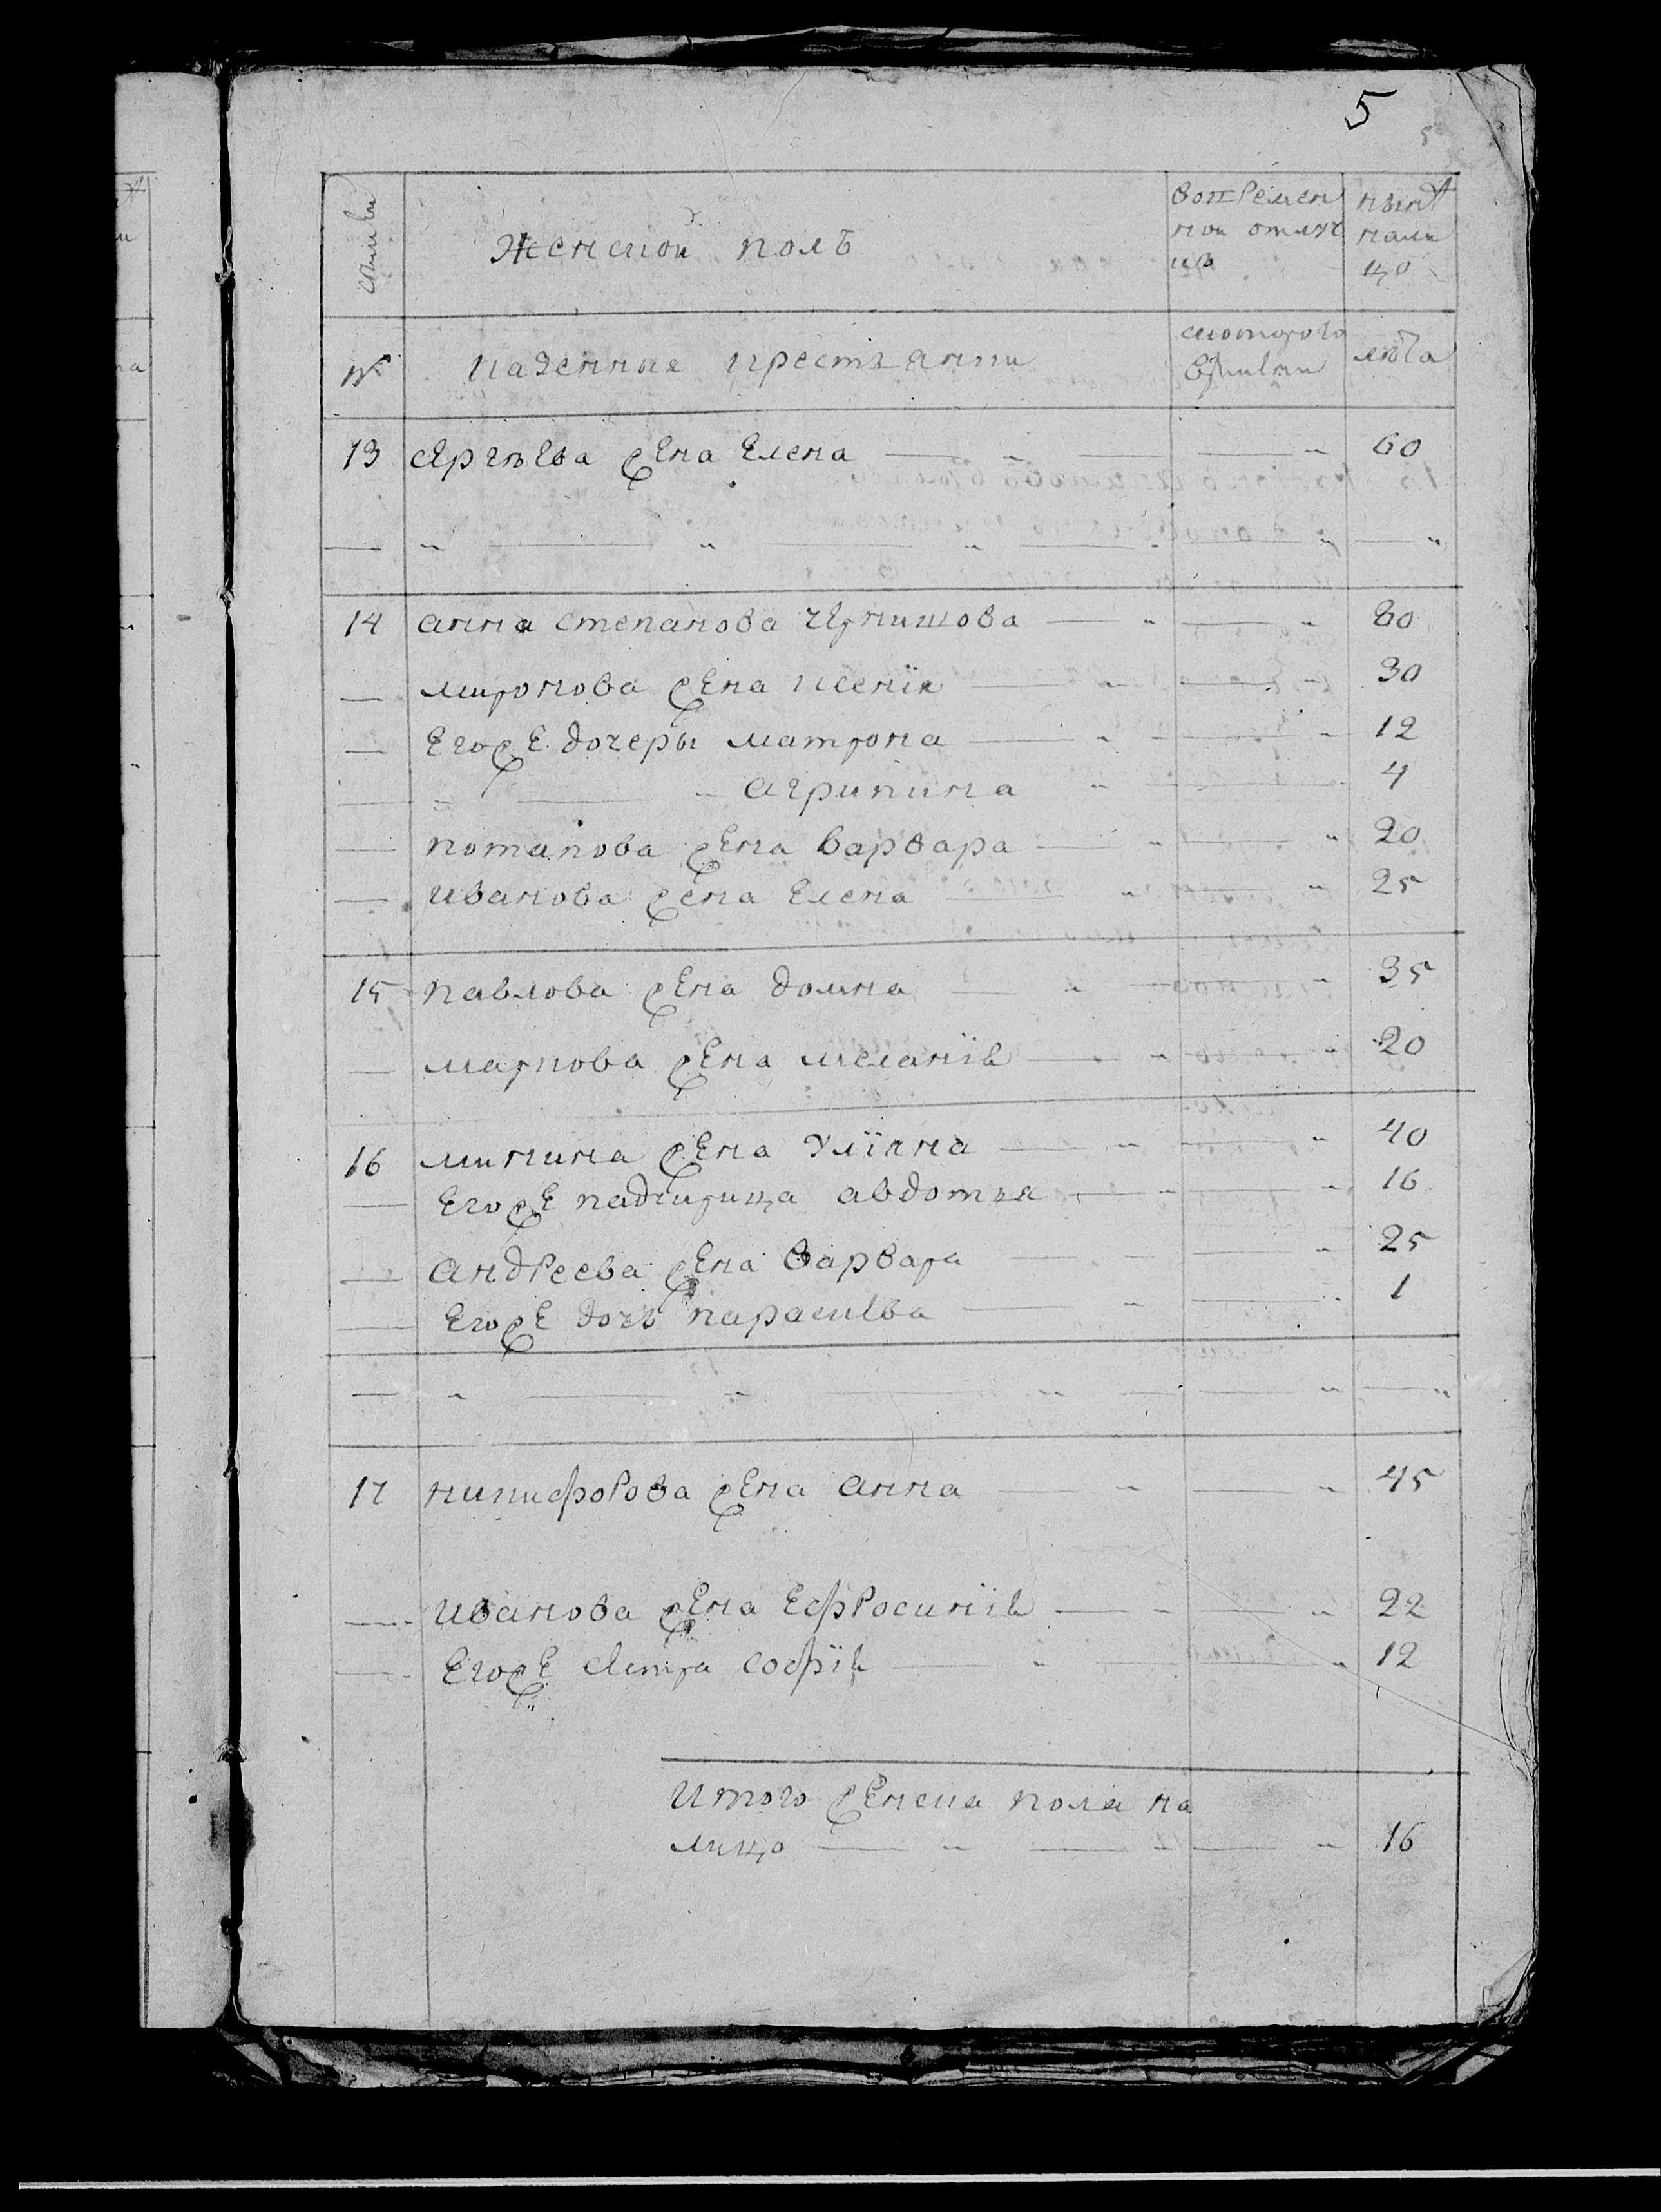 5
семьи
Женской полъ
вовремен
ной отлуч
ке
нынѣ
нали
цо
№
Казенныя крестьянки
скотораго
времени
лѣта
13 Сергѣева жена Елена 60
14 Анна Степанова Чернишова 80
Миронова жена Ксенїя 30
Егожъ дочеры Матрона 12
Агрипина 4
Потапова жена Варвара 20
Иванова жена Елена 25
15 Павлова жена Домна 35
Маркова жена Меланїя 20
16 Минина жена Улїяна 40
Егоже падчирица Авдотья 16
Андреева жена Варвара 25
Егоже дочь Параскева 1
17 Никифорова жена Анна 45
Иванова жена Ефросинїя 22
Егоже сестра Софїя 12
Итого женска пола на
лицо 16